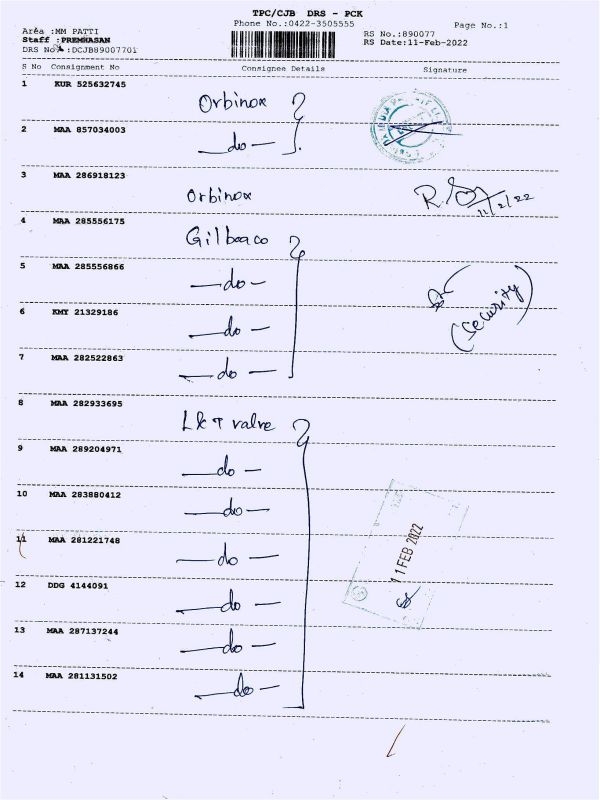 TPC/CJB DRS - PCK
Phone No.:0422-3505555
Page No.:1
Area :MM PATTI
Staff :PREMHASAN
DRS No. :DCJB89007701
RS No.:890077
RS Date:11-Feb-2022
S No Consignment No Consignee Details Signature
1 KUR 525632745 Orbinox
2 MAA 857034003 —do—
3 MAA 286918123 Orbinox
11/2/22
4 MAA 285556175 Gilbarco
5 MAA 285556866 —do—
(security)
6 KMY 21329186 —do—
7 MAA 282522863 —do—
8 MAA 282933695 L&T valve
9 MAA 289204971 —do—
10 MAA 283880412 —do—
11 MAA 281221748 —do—
11 FEB 2022
12 DDG 4144091 —do—
13 MAA 287137244 —do—
14 MAA 281131502 —do—